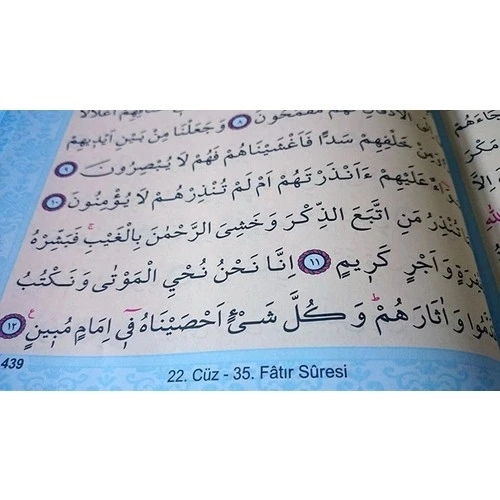 الْاَذْقَانِ فَهُمْ مُقْمَحُونَ ﴿٨﴾ وَجَعَلْنَا مِنْ بَيْنِ اَيْدِيهِمْ
وَمِنْ خَلْفِهِمْ سَدًّا فَاَغْشَيْنَاهُمْ فَهُمْ لَا يُبْصِرُونَ ﴿٩﴾
عَلَيْهِمْ ءَاَنْذَرْتَهُمْ اَمْ لَمْ تُنْذِرْهُمْ لَا يُؤْمِنُونَ ﴿١٠﴾
تُنْذِرُ مَنِ اتَّبَعَ الذِّكْرَ وَخَشِيَ الرَّحْمٰنَ بِالْغَيْبِۚ فَبَشِّرْهُ
وَاَجْرٍ كَرِيمٍ ﴿١١﴾ اِنَّا نَحْنُ نُحْيِ الْمَوْتٰى وَنَكْتُبُ
وَاٰثَارَهُمْۜ وَكُلَّ شَيْءٍ اَحْصَيْنَاهُ فِٓي اِمَامٍ مُبِينٍ۟ ﴿١٢﴾
439
22. Cüz - 35. Fâtır Sûresi